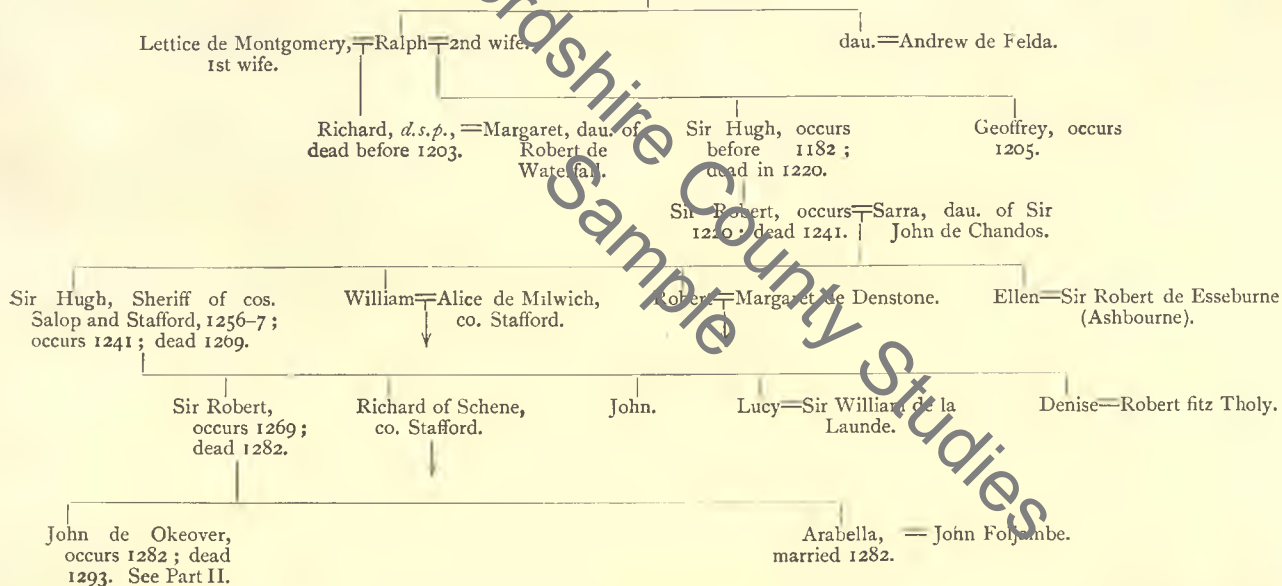 Lettice de Montgomery,=Ralph=2nd wife.
1st wife.
dau.=Andrew de Felda.
Richard, d.s.p.,
dead before 1203.
=Margaret, dau. of
Robert de
Waterfall.
Sir Hugh, occurs
before 1182 ;
dead in 1220.
Geoffrey, occurs
1205.
Sir Robert, occurs
1220 ; dead 1241.
=Sarra, dau. of Sir
John de Chandos.
Sir Hugh, Sheriff of cos.
Salop and Stafford, 1256-7 ;
occurs 1241 ; dead 1269.
William=Alice de Milwich,
co. Stafford.
Robert=Margaret de Denstone.
Ellen=Sir Robert de Esseburne
(Ashbourne).
Sir Robert,
occurs 1269 ;
dead 1282.
Richard of Schene,
co. Stafford.
John.
Lucy=Sir William de la
Launde.
Denise=Robert fitz Tholy.
John de Okeover,
occurs 1282 ; dead
1293. See Part II.
Arabella,
married 1282.
= John Foljambe.
ordshire County Studies
Sample